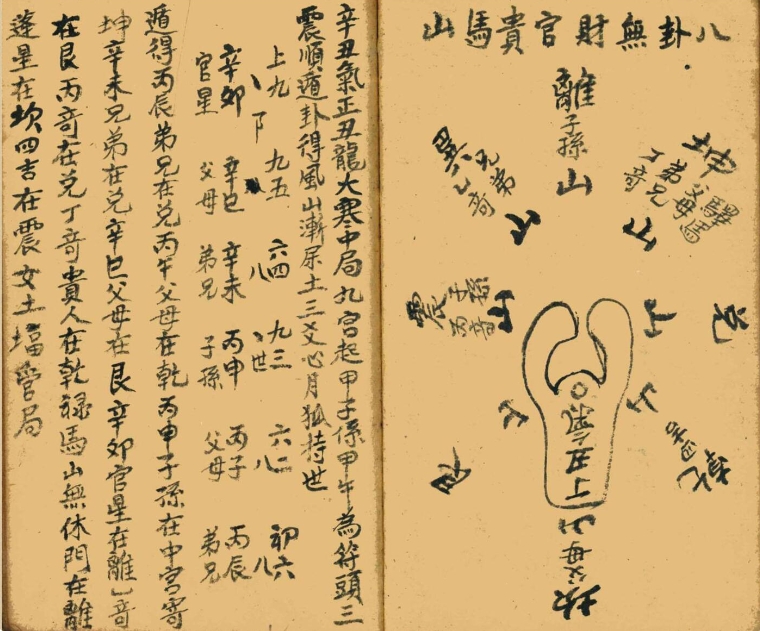 八卦無財官貴馬山
離子孫山
坤
驛馬
父母
弟兄
丁奇
兄弟
乙奇
山
震
子孫
丙奇
山
兌
山
丁丑氣
坎父母山
辛丑氣正丑龍大寒中局九宫起甲子係甲午為符頭三
震順遁卦得風山漸屎土三爻心月狐持世
上九 九五 六四 九三 六二 初六
八 世 八 八
辛卯 辛巳 辛未 丙申 丙子 丙辰
官星 父母 弟兄 子孫 父母 弟兄
遁得丙辰弟兄在兌丙午父母在乾丙申子孫在中宮寄
坤辛未兄弟在兌辛巳父母在艮辛卯官星在離乙奇
在艮丙奇在兌丁奇貴人在乾祿馬山無休門在離
逢星在坎四吉在震女土堛管局